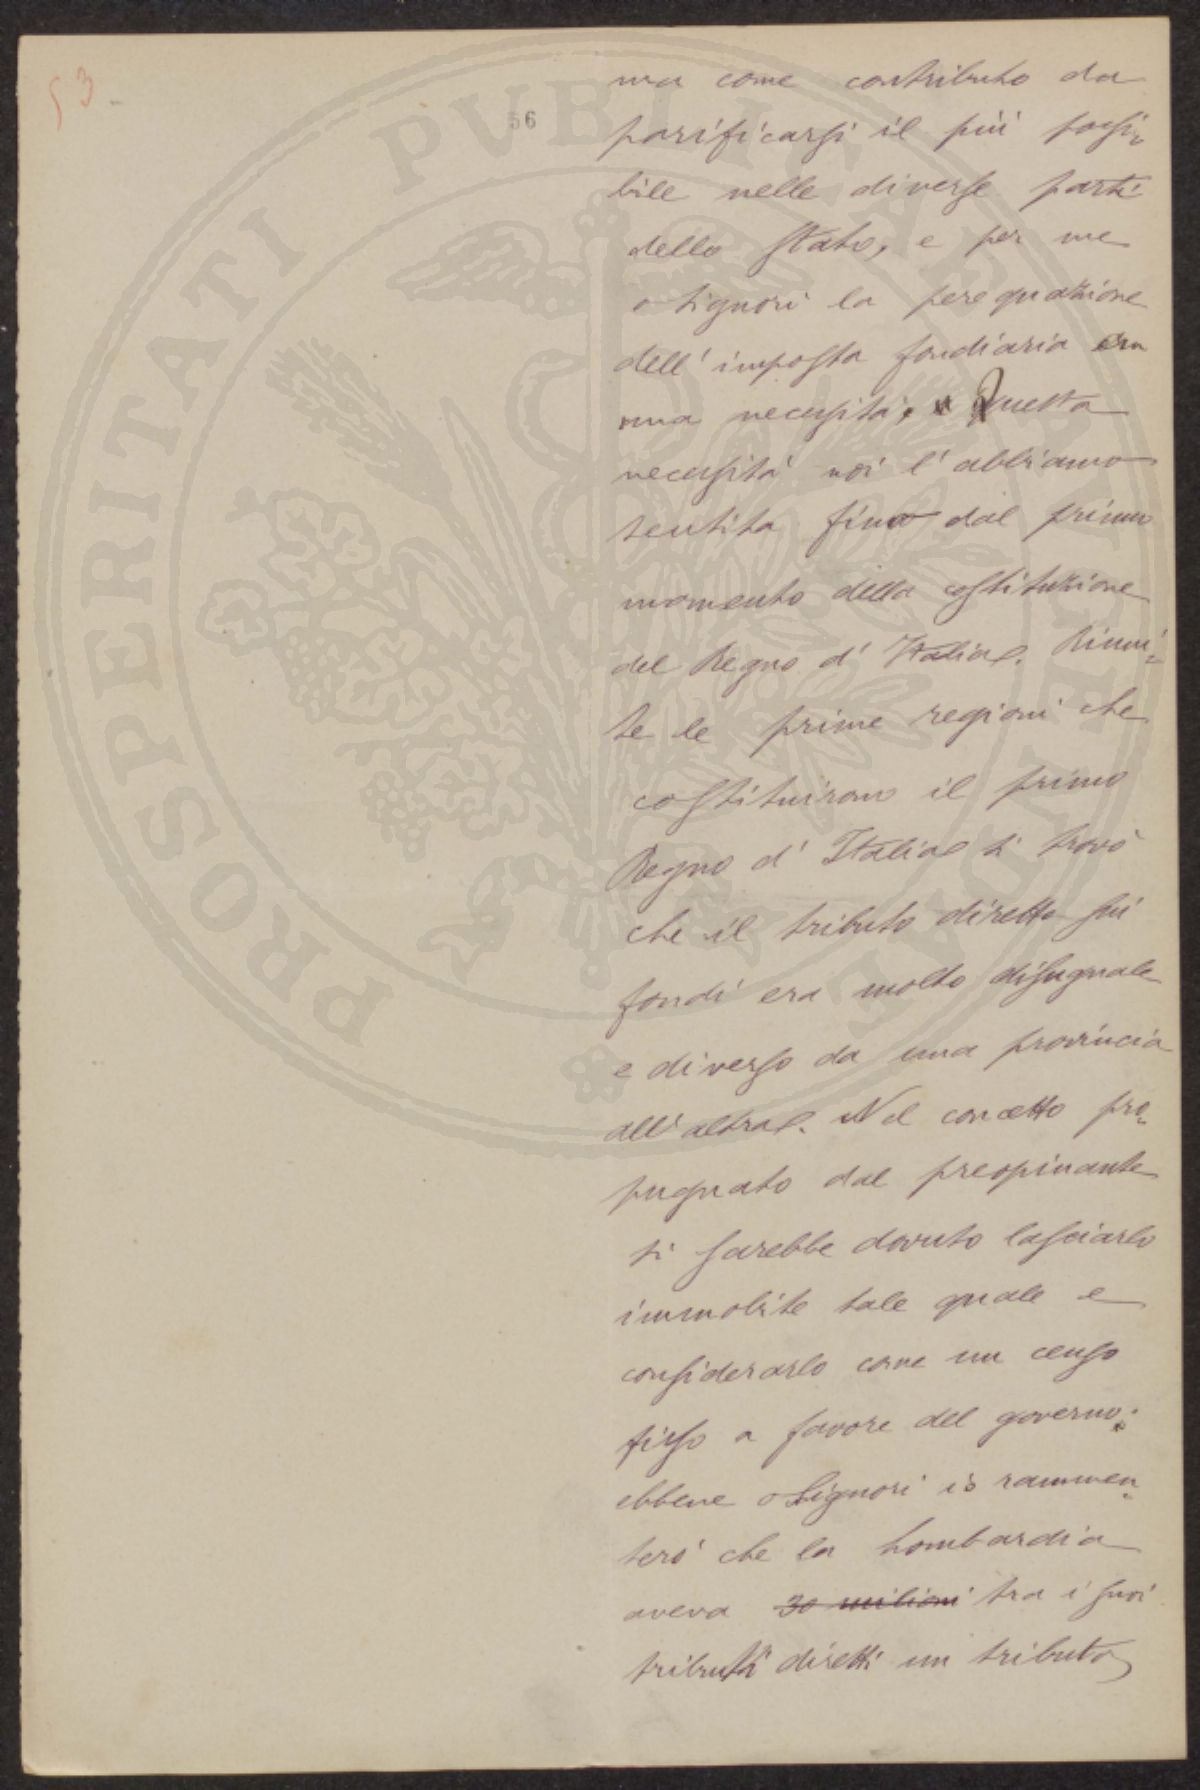 53
56
ma come contributo da
parificarsi il più possi-
bile nelle diverse parti
dello Stato, e per me
o Signori la perequazione
dell'imposta fondiaria era
una necessità. Questa
necessità noi l'abbiamo
sentita fino dal primo
momento della costituzione
del Regno d'Italia. Riuni-
te le prime regioni che
costituirono il primo
Regno d'Italia si trovò
che il tributo diretto sui
fondi era molto disuguale
e diverso da una provincia
all'altra. Nel concetto pro-
pugnato dal preopinante
si sarebbe dovuto lasciarlo
immobile tale quale e
considerarlo come un censo
fisso a favore del governo:
ebbene o Signori io rammen-
terò che la Lombardia
aveva 30 milioni tra i suoi
tributi diretti un tributo
PROSPERITATI PVBLICAE AVGENDAE